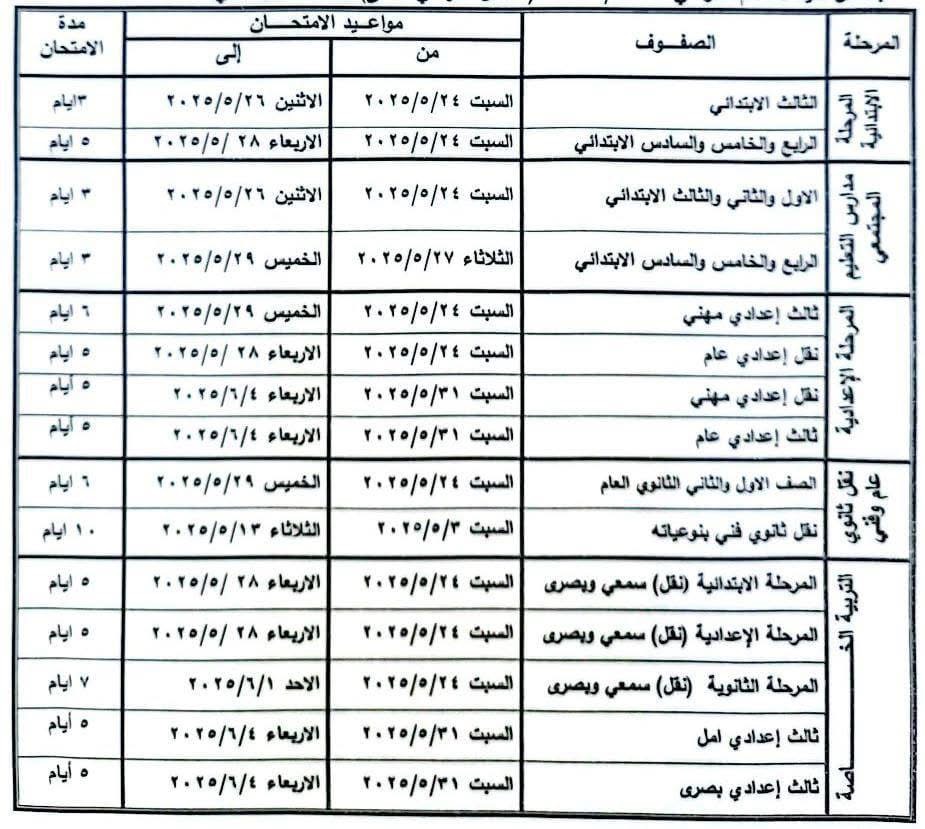 المرحلة الصفــوف مواعيد الامتحــان مدة الامتحان
من إلى
المرحلة الابتدائية
الثالث الابتدائي السبت ٢٠٢٥/٥/٢٤ الاثنين ٢٠٢٥/٥/٢٦ ٣ايام
الرابع والخامس والسادس الابتدائي السبت ٢٠٢٥/٥/٢٤ الاربعاء ٢٨ /٢٠٢٥/٥ ٥ ايام
مدارس التعليم المجتمعي
الاول والثاني والثالث الابتدائي السبت ٢٠٢٥/٥/٢٤ الاثنين ٢٠٢٥/٥/٢٦ ٣ ايام
الرابع والخامس والسادس الابتدائي الثلاثاء ٢٠٢٥/٥/٢٧ الخميس ٢٠٢٥/٥/٢٩ ٣ ايام
المرحلة الإعدادية
ثالث إعدادي مهني السبت ٢٠٢٥/٥/٢٤ الخميس ٢٠٢٥/٥/٢٩ ٦ ايام
نقل إعدادي عام السبت ٢٠٢٥/٥/٢٤ الاربعاء ٢٨ /٢٠٢٥/٥ ٥ ايام
نقل إعدادي مهني السبت ٢٠٢٥/٥/٣١ الاربعاء ٢٠٢٥/٦/٤ ٥ أيام
ثالث إعدادي عام السبت ٢٠٢٥/٥/٣١ الاربعاء ٢٠٢٥/٦/٤ ٥ أيام
نقل ثانوي عام وفني
الصف الاول والثاني الثانوي العام السبت ٢٠٢٥/٥/٢٤ الخميس ٢٠٢٥/٥/٢٩ ٦ ايام
نقل ثانوي فني بنوعياته السبت ٢٠٢٥/٥/٣ الثلاثاء ٢٠٢٥/٥/١٣ ١٠ ايام
التربية الخــــــاصة
المرحلة الابتدائية (نقل) سمعي وبصرى السبت ٢٠٢٥/٥/٢٤ الاربعاء ٢٨ /٢٠٢٥/٥ ٥ ايام
المرحلة الإعدادية (نقل) سمعي وبصرى السبت ٢٠٢٥/٥/٢٤ الاربعاء ٢٨ /٢٠٢٥/٥ ٥ ايام
المرحلة الثانوية (نقل) سمعي وبصرى السبت ٢٠٢٥/٥/٢٤ الاحد ٢٠٢٥/٦/١ ٧ ايام
ثالث إعدادي امل السبت ٢٠٢٥/٥/٣١ الاربعاء ٢٠٢٥/٦/٤ ٥ أيام
ثالث إعدادي بصرى السبت ٢٠٢٥/٥/٣١ الاربعاء ٢٠٢٥/٦/٤ ٥ أيام